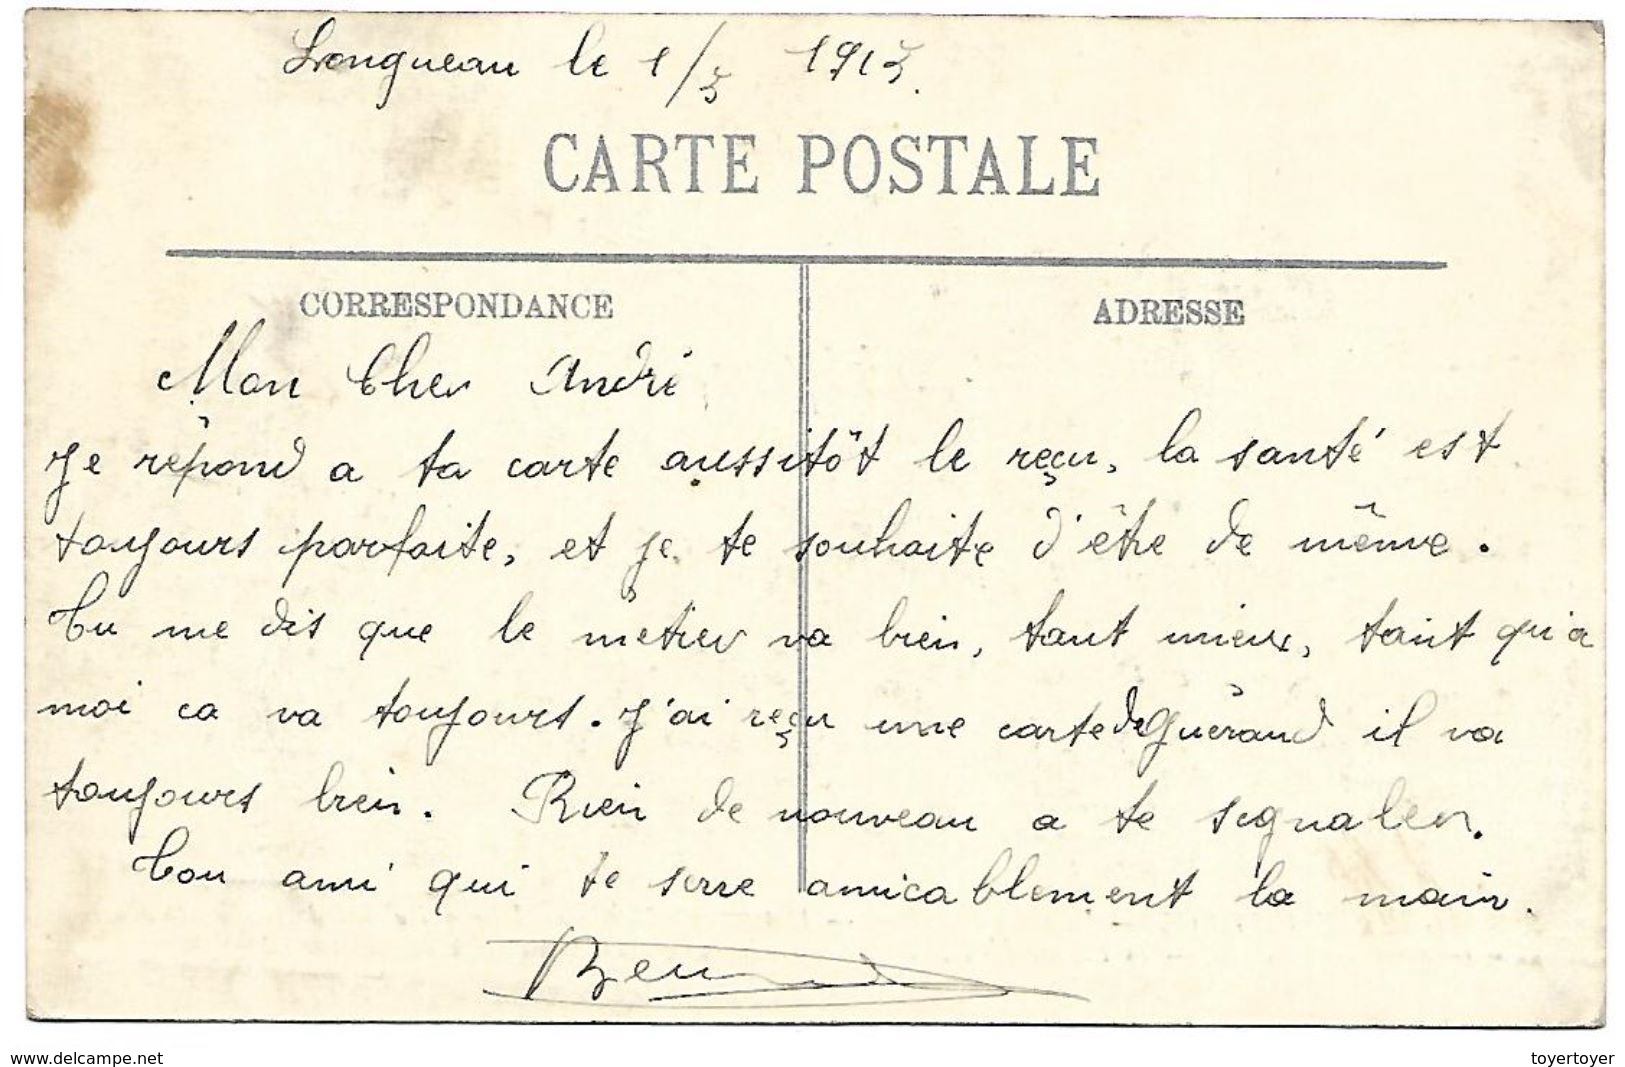 Longueau le 1/5 1915.
CARTE POSTALE
CORRESPONDANCE
ADRESSE
Mon Cher André
Je répond a ta carte aussitôt le reçu, la santé est
toujours parfaite, et je te souhaite d'être de même.
Tu me dis que le métier va bien, tant mieux, tant qu'a
moi ca va toujours. J'ai reçu une carte de Guérand il va
toujours bien. Rien de nouveau a te signaler.
Ton ami qui te serre amicablement la main.
www.delcampe.net
toyertoyer